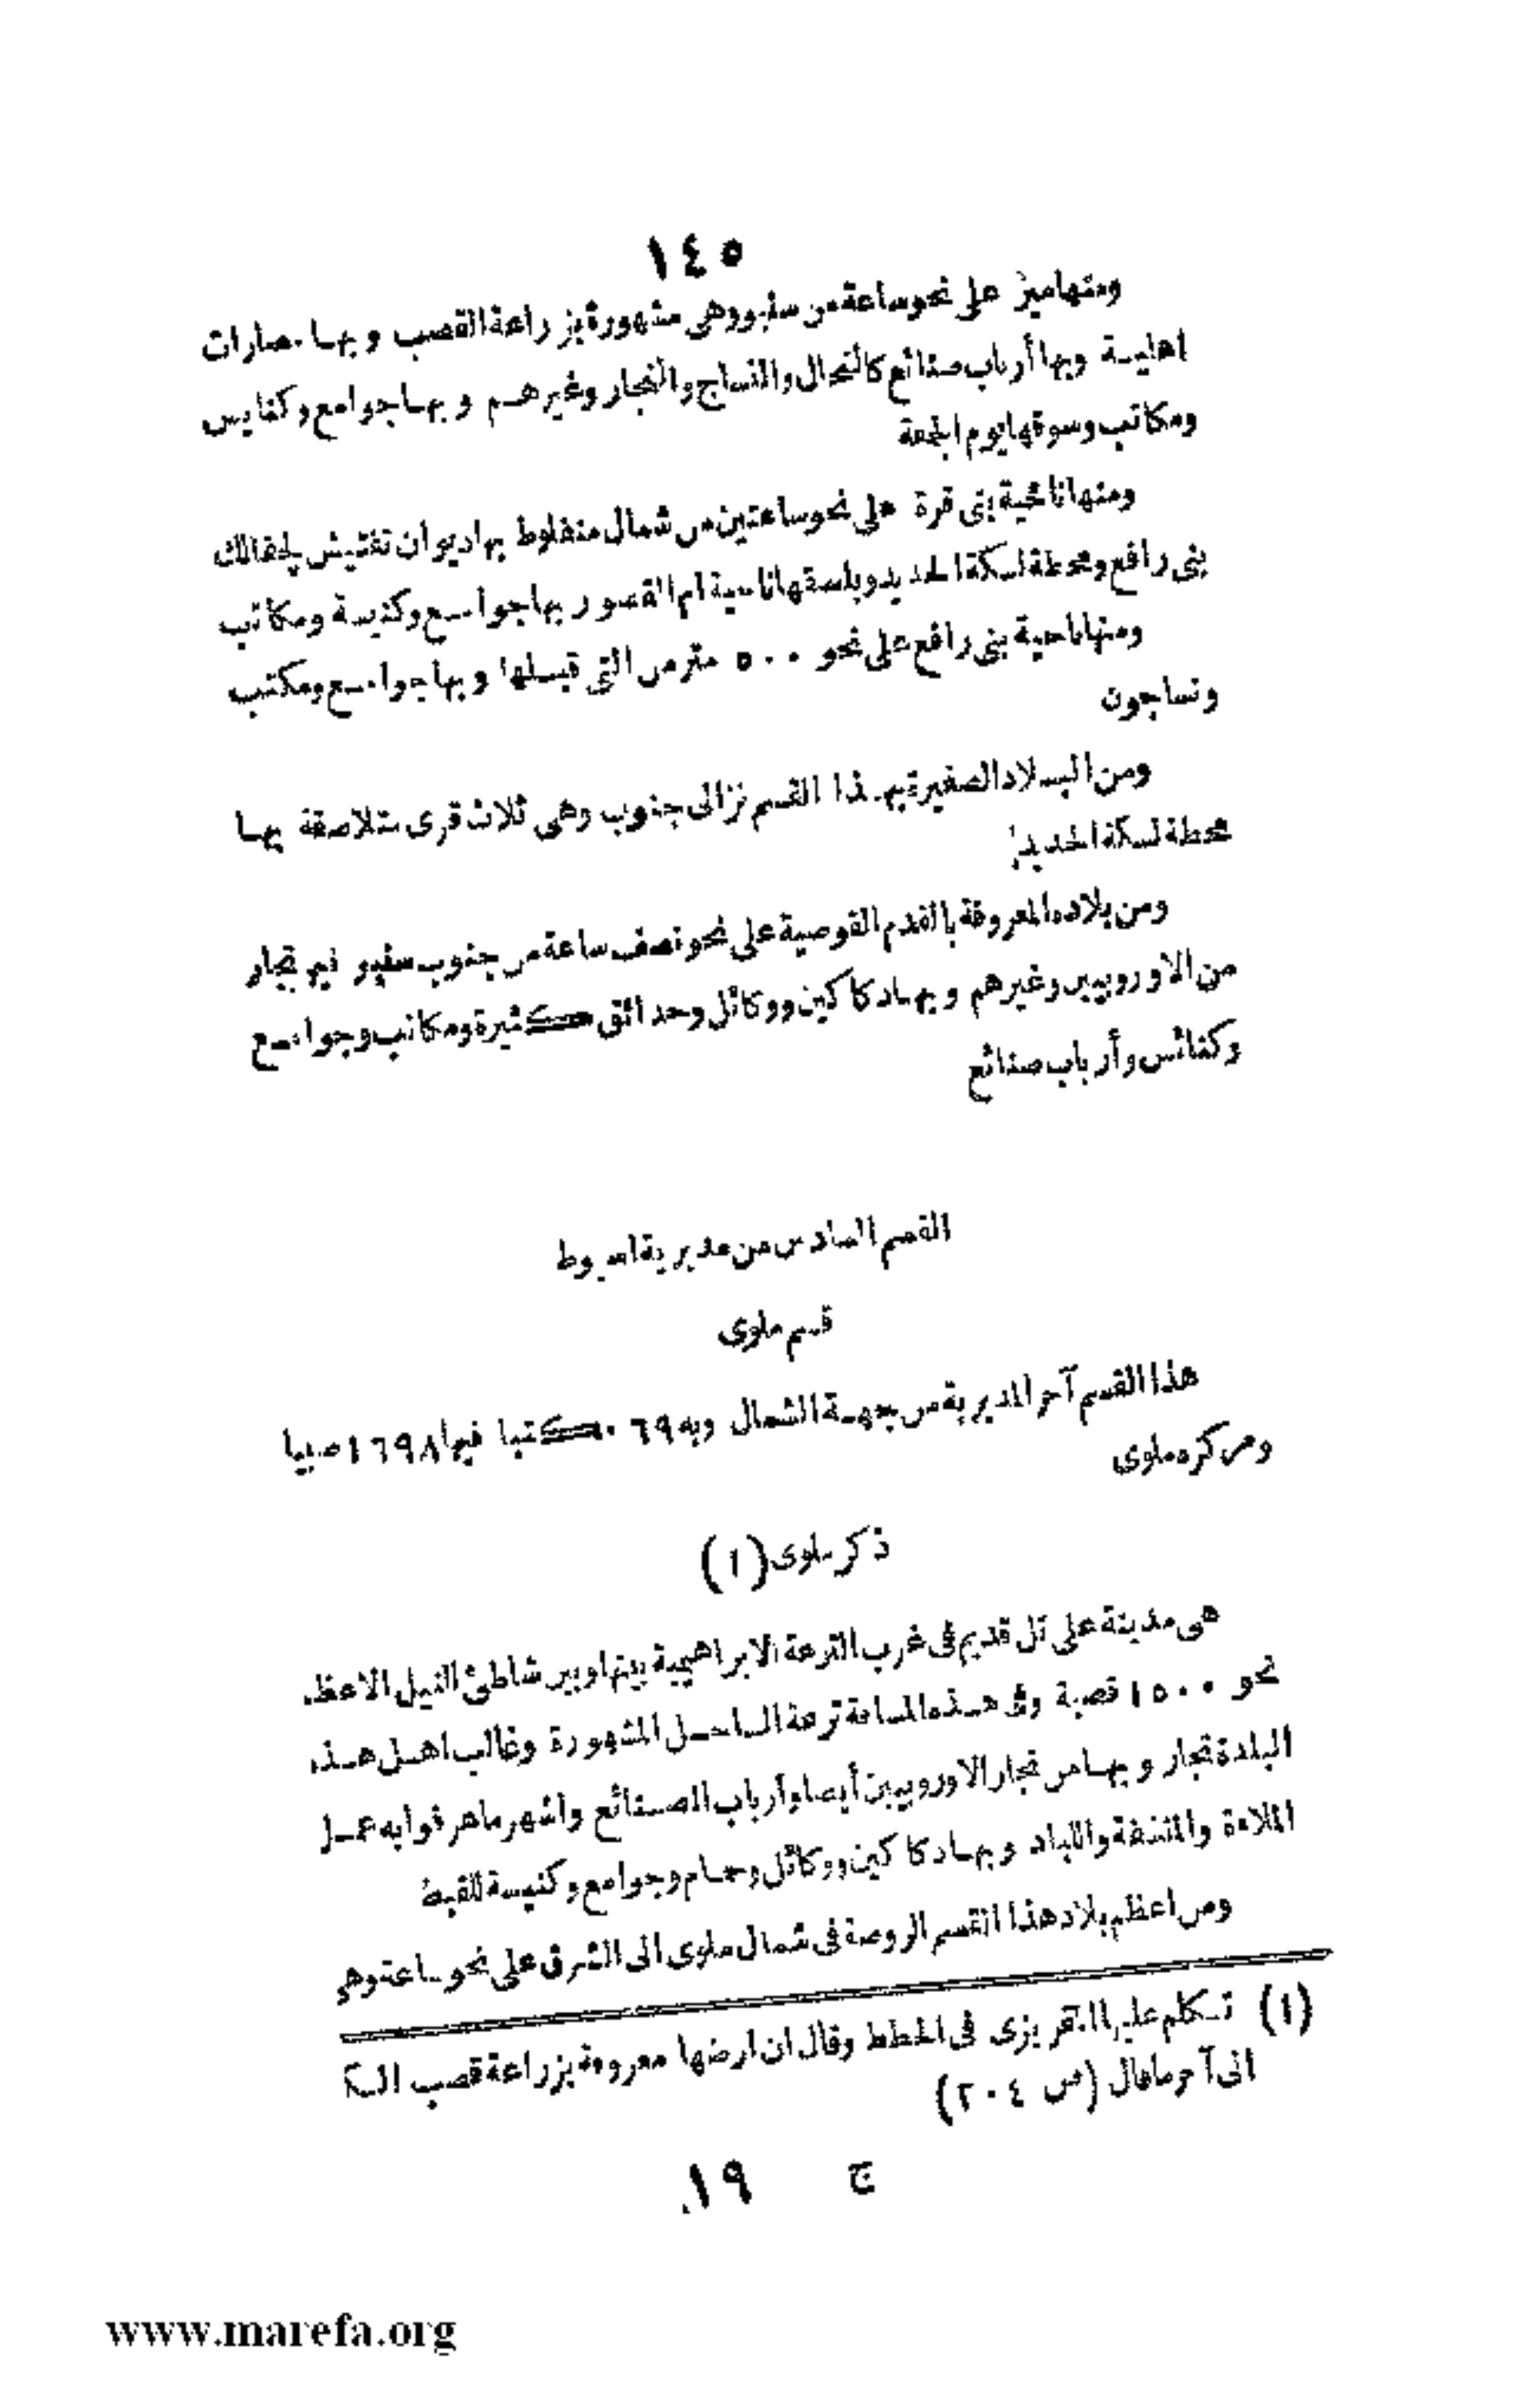 ١٤٥
ومنها مير على نحو ساعة من سنبو وهى مشهورة بزراعة القصب وبها عصارات
اهلية وبها أرباب صنائع كالنحال والنساج والنجار وغيرهم وبها جوامع وكنايس
ومكاتب وسوقها يوم الجمعة
ومنها ناحية بنى قرة على نحو ساعتين من شمال منفلوط بها ديوان تفتيش لجفالك
بنى رافع ومحطة لسكة الحديد وبلصقها ناحية ام القصور بها جوامع وكنيسة ومكاتب
ومنها ناحية بنى رافع على نحو ٥٠٠ متر من التى قبلها وبها جوامع ومكتب
ونساجون
ومن البلاد الصغيرة بهذا القسم نزالى جنوب وهى ثلاث قرى متلاصقة بها
محطة لسكة الحديد
ومن بلاده المعروفة بالقدم القوصية على نحو نصف ساعة من جنوب سنبو فيه تجار
من الاوروبيين وغيرهم وبها دكاكين ووكائل وحدائق كثيرة ومكاتب وجوامع
وكنائس وأرباب صنائع
القسم السادس من مديرية اسيوط
قسم ملوى
هذا القسم آخر المديرية من جهة الشمال وبه ٦٩ مكتبا فيها ١٦٩٨ صبيا
ومركزه ملوى
ذكر ملوى (١)
هى مدينة على تل قديم فى غرب الترعة الابراهيمية بينها وبين شاطئ النيل الاعظم
نحو ١٥٠٠ قصبة وفى هذه المسافة ترعة الساحل المشهورة وغالب اهل هذه
البلدة تجار وبها من تجار الاوروبيين أيضا وأرباب الصنائع واشهر ما هرفوا به عمل
الملاءة والمنشفة واللباد وبها دكاكين ووكائل وحمام وجوامع وكنيسة للقبط
ومن اعظم بلاد هذا القسم الروضة فى شمال ملوى الى الشرق على نحو ساعة وهى
(١) تكلم عليها المقريزى فى الخطط وقال ان ارضها معروفة بزراعة قصب السكر
الى آخر ما قال (ص ٢٠٤)
ج ١٩
www.marefa.org